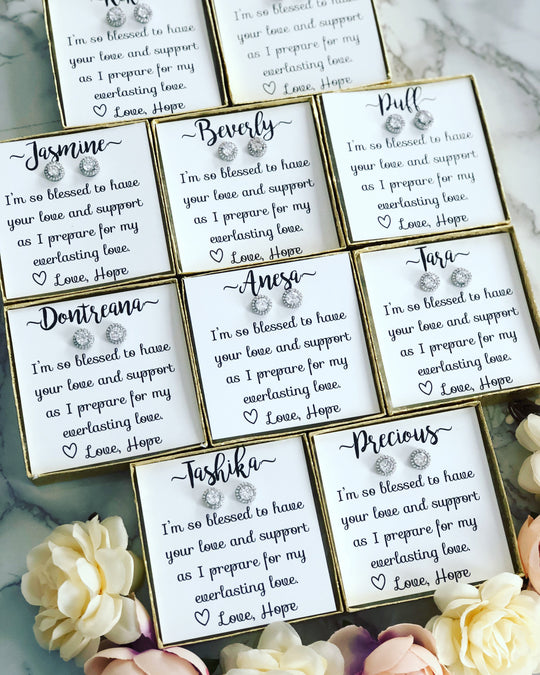 I'm so blessed to have
your love and support
as I prepare for my
everlasting love.
♡ Love, Hope
I'm so blessed to have
your love and support
as I prepare for my
everlasting love.
♡ Love, Hope
~Jasmine~
I'm so blessed to have
your love and support
as I prepare for my
everlasting love.
♡ Love, Hope
~Beverly~
I'm so blessed to have
your love and support
as I prepare for my
everlasting love.
♡ Love, Hope
I'm so blessed to have
your love and support
as I prepare for my
everlasting love.
♡ Love, Hope
~Dontreana~
I'm so blessed to have
your love and support
as I prepare for my
everlasting love.
♡ Love, Hope
~Anesa~
I'm so blessed to have
your love and support
as I prepare for my
everlasting love.
♡ Love, Hope
~Tara~
I'm so blessed to have
your love and support
as I prepare for my
everlasting love.
♡ Love, Hope
~Tashika~
I'm so blessed to have
your love and support
as I prepare for my
everlasting love.
♡ Love, Hope
~Precious~
I'm so blessed to have
your love and support
as I prepare for my
everlasting love.
♡ Love, Hope